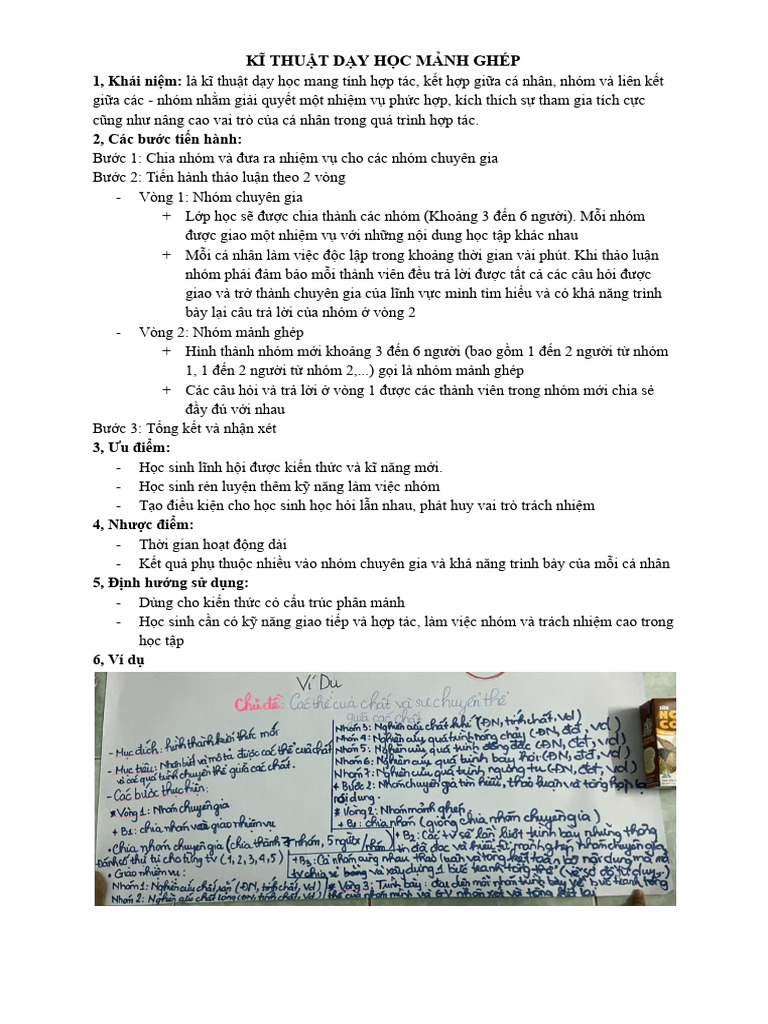 KĨ THUẬT DẠY HỌC MẢNH GHÉP
1, Khái niệm: là kĩ thuật dạy học mang tính hợp tác, kết hợp giữa cá nhân, nhóm và liên kết
giữa các - nhóm nhằm giải quyết một nhiệm vụ phức hợp, kích thích sự tham gia tích cực
cũng như nâng cao vai trò của cá nhân trong quá trình hợp tác.
2, Các bước tiến hành:
Bước 1: Chia nhóm và đưa ra nhiệm vụ cho các nhóm chuyên gia
Bước 2: Tiến hành thảo luận theo 2 vòng
- Vòng 1: Nhóm chuyên gia
+ Lớp học sẽ được chia thành các nhóm (Khoảng 3 đến 6 người). Mỗi nhóm
được giao một nhiệm vụ với những nội dung học tập khác nhau
+ Mỗi cá nhân làm việc độc lập trong khoảng thời gian vài phút. Khi thảo luận
nhóm phải đảm bảo mỗi thành viên đều trả lời được tất cả các câu hỏi được
giao và trở thành chuyên gia của lĩnh vực mình tìm hiểu và có khả năng trình
bày lại câu trả lời của nhóm ở vòng 2
- Vòng 2: Nhóm mảnh ghép
+ Hình thành nhóm mới khoảng 3 đến 6 người (bao gồm 1 đến 2 người từ nhóm
1, 1 đến 2 người từ nhóm 2,...) gọi là nhóm mảnh ghép
+ Các câu hỏi và trả lời ở vòng 1 được các thành viên trong nhóm mới chia sẻ
đầy đủ với nhau
Bước 3: Tổng kết và nhận xét
3, Ưu điểm:
- Học sinh lĩnh hội được kiến thức và kĩ năng mới.
- Học sinh rèn luyện thêm kỹ năng làm việc nhóm
- Tạo điều kiện cho học sinh học hỏi lẫn nhau, phát huy vai trò trách nhiệm
4, Nhược điểm:
- Thời gian hoạt động dài
- Kết quả phụ thuộc nhiều vào nhóm chuyên gia và khả năng trình bày của mỗi cá nhân
5, Định hướng sử dụng:
- Dùng cho kiến thức có cấu trúc phân mảnh
- Học sinh cần có kỹ năng giao tiếp và hợp tác, làm việc nhóm và trách nhiệm cao trong
học tập
6, Ví dụ
Ví Dụ
Chủ đề: Các thể của chất và sự chuyển thể
giữa các chất
- Mục đích: hình thành kiến thức mới
- Mục tiêu: Nhận biết và mô tả được các thể của chất
và các quá trình chuyển thể giữa các chất.
- Các bước thực hiện:
* Vòng 1: Nhóm chuyên gia
+ B1: chia nhóm và giao nhiệm vụ
• Chia nhóm chuyên gia (chia thành 7 nhóm, 5 người/nhóm)
Đánh số thứ tự cho từng tv (1, 2, 3, 4, 5)
• Giao nhiệm vụ:
Nhóm 1: Nghiên cứu chất rắn (ĐN, tính chất, vd)
Nhóm 2: Nghiên cứu chất lỏng (ĐN, tính chất, vd)
Nhóm 3: Nghiên cứu chất khí (ĐN, tính chất, vd)
Nhóm 4: Nghiên cứu quá trình nóng chảy (ĐN, đđ, vd)
Nhóm 5: Nghiên cứu quá trình đông đặc (ĐN, đđ, vd)
Nhóm 6: Nghiên cứu quá trình bay hơi (ĐN, đđ, vd)
Nhóm 7: Nghiên cứu quá trình ngưng tụ (ĐN, đđ, vd)
+ Bước 2: Nhóm chuyên gia tìm hiểu, thảo luận và tổng hợp lại
nội dung.
* Vòng 2: Nhóm mảnh ghép
+ B1: chia nhóm (giống chia nhóm chuyên gia)
+ B2: Các tv sẽ lần lượt trình bày những thông
tin đã đọc và hiểu từ nhóm chuyên gia
+ B3: Cả nhóm cùng nhau thảo luận và tổng kết toàn bộ nội dung mà mỗi
tv chia sẻ và xây dựng 1 bức tranh tổng thể (vẽ sơ đồ tư duy...)
* Vòng 3: Trình bày: đại diện mỗi nhóm trình bày về bức tranh tổng
thể của nhóm mình và GV nhận xét và tổng kết lại